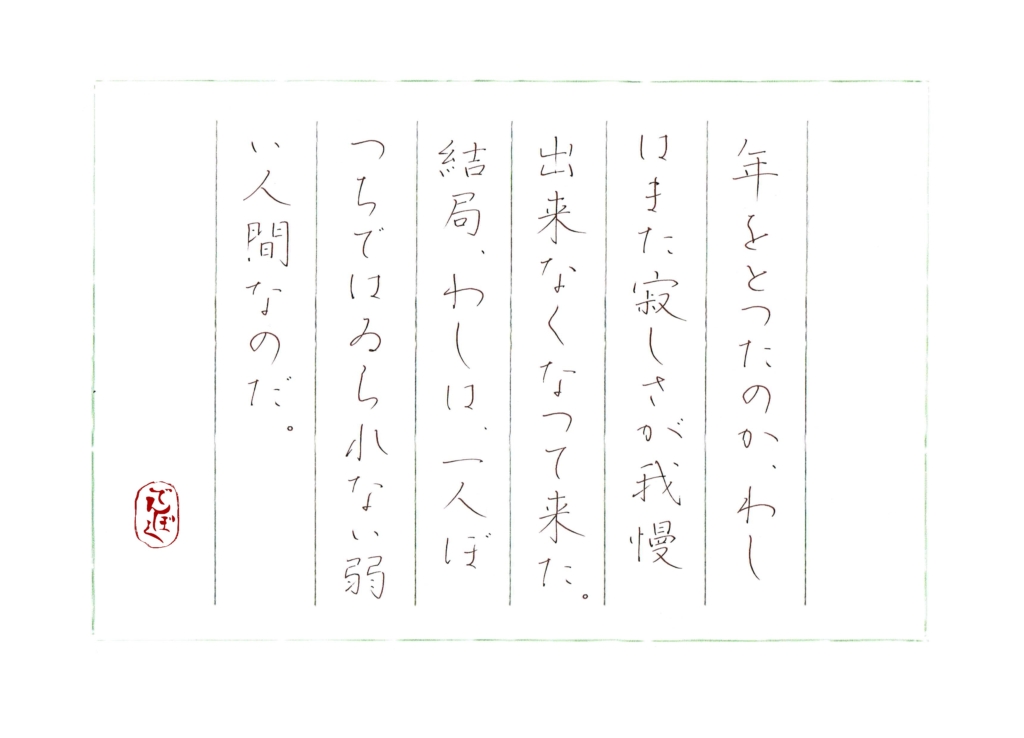 年をとつたのか、わし
はまた寂しさが我慢
出来なくなつて来た。
結局、わしは、一人ぼ
つちではゐられない弱
い人間なのだ。